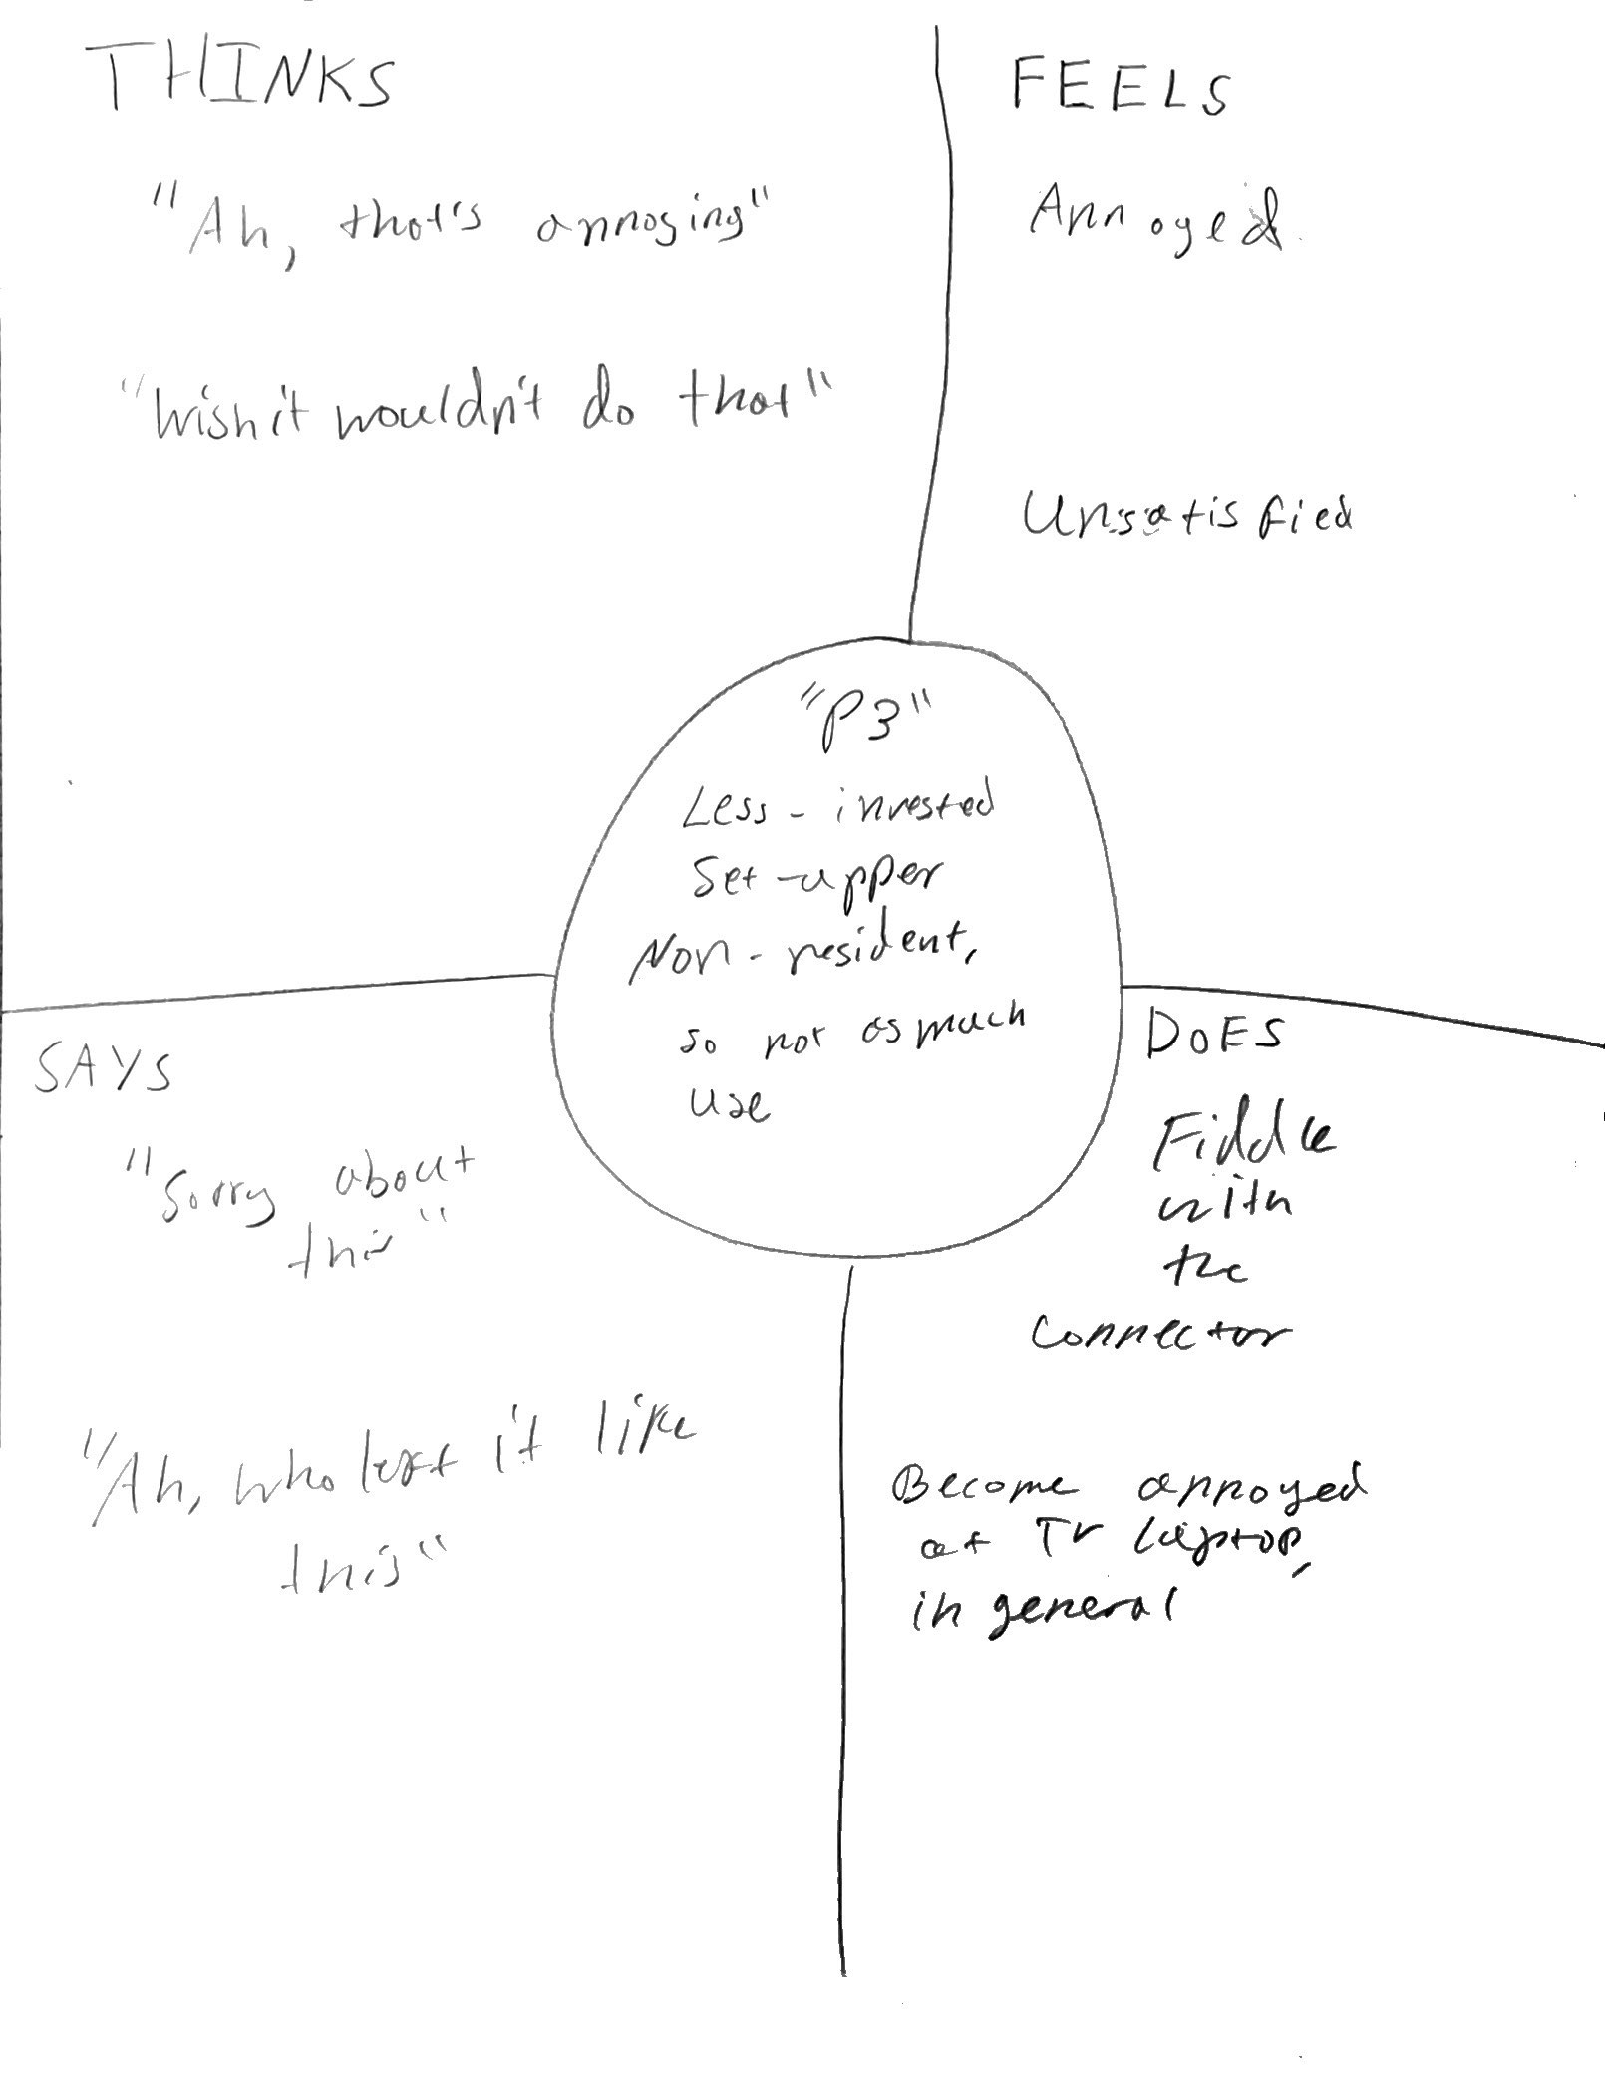 THINKS
"Ah, that's annoying"
"Wish it wouldn't do that"
FEELS
Annoyed
Unsatisfied
"P3"
Less-invested
Set-upper
Non-resident,
so not as much
use
SAYS
"Sorry about
this"
"Ah, who left it like
this"
DOES
Fiddle
with
the
connector
Become annoyed
at TV laptop,
in general